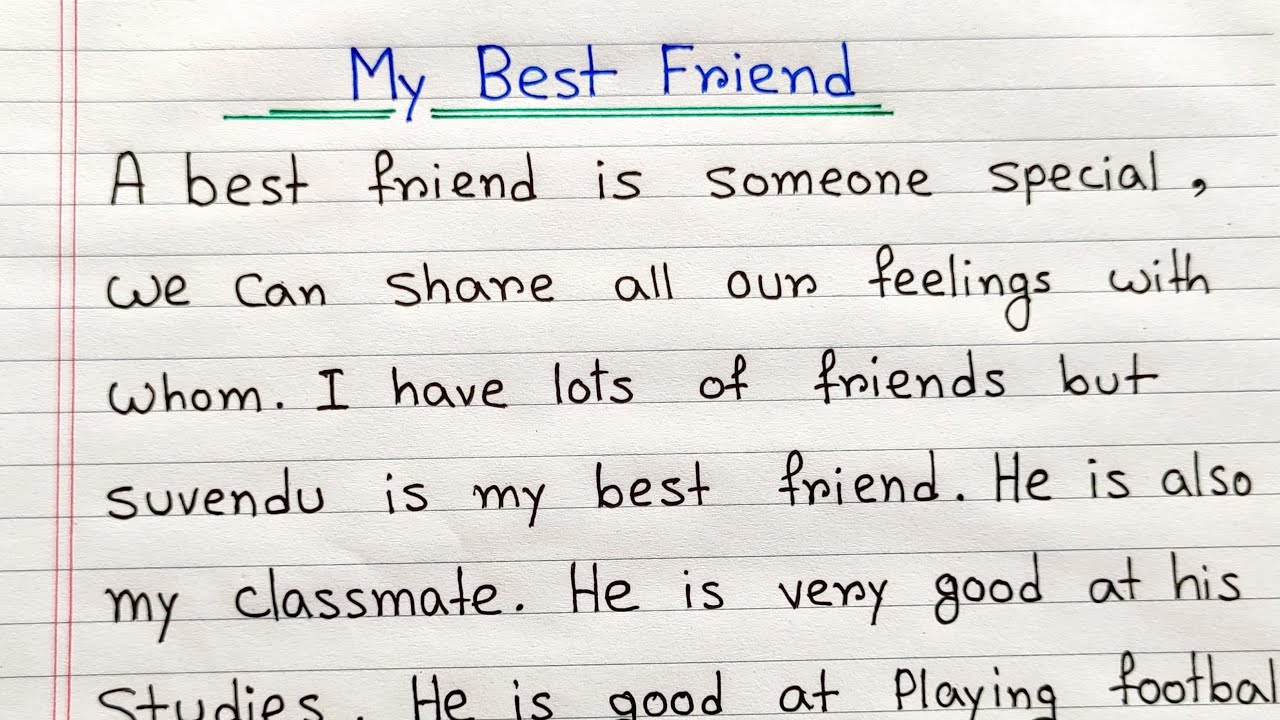 My Best Friend
A best friend is someone special,
we can share all our feelings with
whom. I have lots of friends but
suvendu is my best friend. He is also
my classmate. He is very good at his
Studies. He is good at Playing footbal